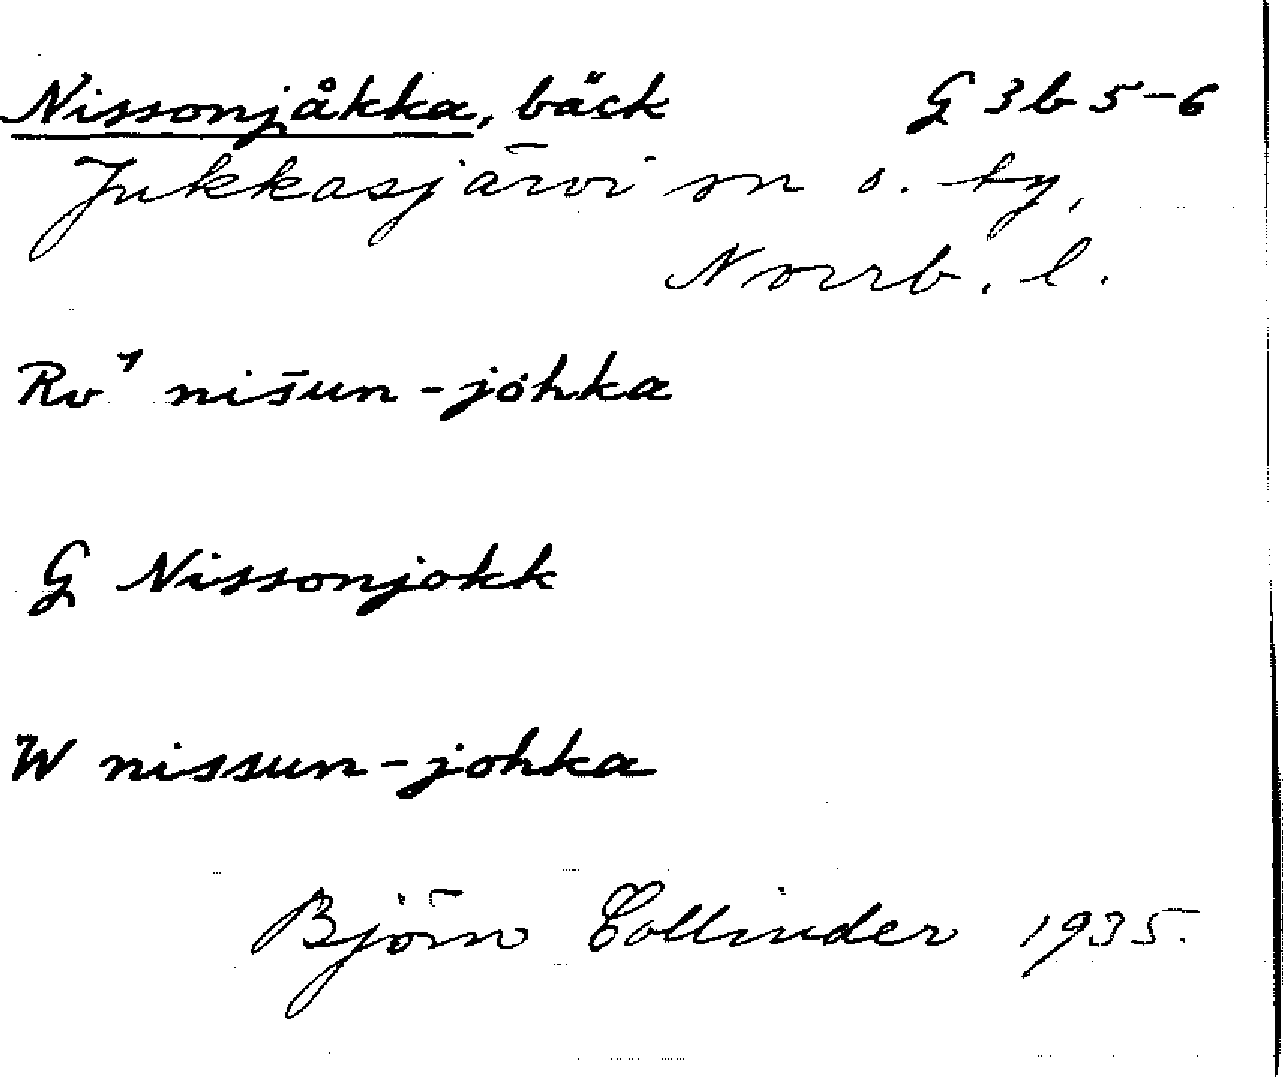 Nissonjåkka, bäck G 3b 5-6
Jukkasjärvi sn o. ty,
Norrb. l.
Rv¹ nis̄un-jo̜hka
G Nissonjokk
W nissun-johka
Björn Collinder 1935.